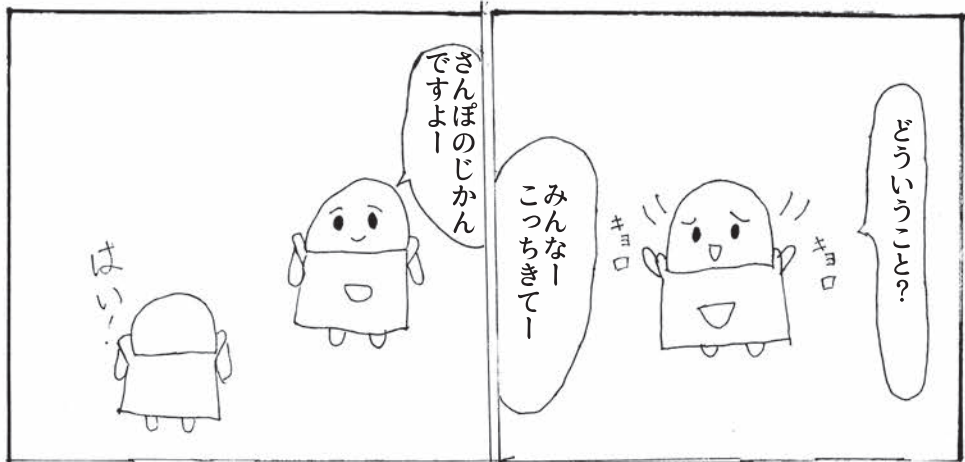 どういうこと?
キョロ
キョロ
みんなー
こっちきてー
さんぽのじかん
ですよー
はい!